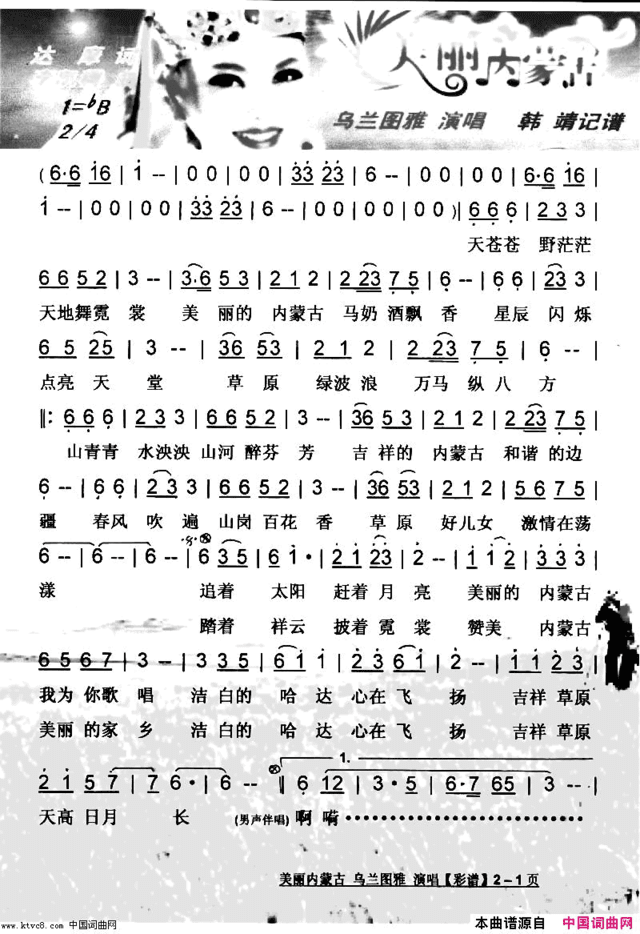 达 摩 词
美丽内蒙古
1=♭B
2/4
乌兰图雅 演唱 韩 靖记谱
( 6·6 i6 | i -- | 0 0 | 0 0 | 33 23 | 6 -- | 0 0 | 0 0 | 6·6 i6 |
i -- | 0 0 | 0 0 | 33 23 | 6 -- | 0 0 | 0 0 )| 6 6 6 | 2 3 3 |
天苍苍 野茫茫
6 6 5 2 | 3 -- | 3·6 5 3 | 2 1 2 | 2 23 7 5 | 6 -- | 6 6 6 | 2 3 3 |
天地舞霓 裳 美 丽的 内蒙古 马奶 酒飘 香 星辰 闪烁
6 5 25 | 3 -- | 36 53 | 2 1 2 | 2 23 7 5 | 6 -- |
点亮 天 堂 草 原 绿波 浪 万马 纵 八 方
‖: 6 6 6 | 2 3 3 | 6 6 5 2 | 3 -- | 36 53 | 2 1 2 | 2 23 7 5 |
山青青 水泱泱 山河 醉芬 芳 吉 祥的 内蒙古 和谐 的边
6 -- | 6 6 | 2 3 3 | 6 6 5 2 | 3 -- | 36 53 | 2 1 2 | 2 23 7 5 |
疆 春风 吹 遍 山岗 百花 香 草 原 好儿女 激情在荡
6 -- | 6 -- | 6 -- | 6 35 | 6 i· | 2 1 23 | 2 -- | i i 2 | i 3 5 |
漾 追着 太阳 赶着 月 亮 美丽的 内蒙古
踏着 祥云 披着 霓 裳 赞美 内蒙古
6 5 6 7 | 3 -- | 3 5 3 | 6 i i | 2 3 6 i | 2 -- | i i i | 2 2 3 |
我为 你歌 唱 洁 白的 哈 达 心在 飞 扬 吉祥 草原
美丽 的家 乡 洁 白的 哈 达 心在 飞 扬 吉祥 草原
1.
2 i 5 7 | 7 6· | 6 -- ‖ 6 12 | 3· 5 | 6·7 65 | 3 -- |
天高 日月 长 (男声伴唱) 啊 嗬
美丽内蒙古 乌兰图雅 演唱【彩谱】2－1页
www.ktvc8.com 中国词曲网
本曲谱源自 中国词曲网